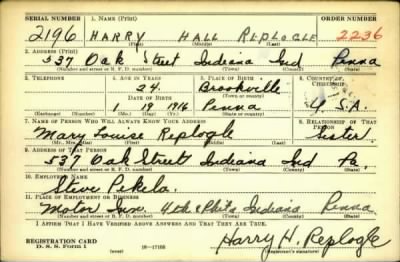 SERIAL NUMBER 1. NAME (Print) ORDER NUMBER
2196 HARRY HALL REPLOGLE 2236
(First) (Middle) (Last)
2. ADDRESS (Print)
537 Oak Street Indiana Ind Penna
(Number and street or R. F. D. number) (Town) (County) (State)
3. TELEPHONE 4. AGE IN YEARS 5. PLACE OF BIRTH 6. COUNTRY OF CITIZENSHIP
24 Brookville
DATE OF BIRTH (Town or county)
1 19 1916 Penna U.S.A.
(Exchange) (Number) (Mo.) (Day) (Yr.) (State or country)
7. NAME OF PERSON WHO WILL ALWAYS KNOW YOUR ADDRESS 8. RELATIONSHIP OF THAT PERSON
Mary Louise Replogle Sister
(Mr., Mrs., Miss) (First) (Middle) (Last)
9. ADDRESS OF THAT PERSON
537 Oak Street Indiana Ind Pa.
(Number and street or R. F. D. number) (Town) (County) (State)
10. EMPLOYER'S NAME
Steve Pekela.
11. PLACE OF EMPLOYMENT OR BUSINESS
Motor Inn. 4th & Phila Indiana Penna
(Number and street or R. F. D. number) (Town) (County) (State)
I AFFIRM THAT I HAVE VERIFIED ABOVE ANSWERS AND THAT THEY ARE TRUE.
REGISTRATION CARD
D. S. S. Form 1 (over) 16—17105 Harry H. Replogle
(Registrant's signature)